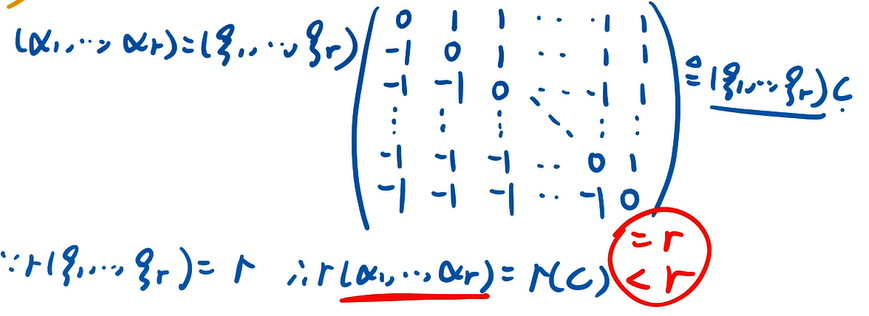 (α₁,⋯,αᵣ)=(ξ₁,⋯,ξᵣ)
0 1 1 ⋯ 1 1
-1 0 1 ⋯ 1 1
-1 -1 0 ⋯ 1 1
⋮ ⋮ ⋮ ⋱ ⋮ ⋮
-1 -1 -1 ⋯ 0 1
-1 -1 -1 ⋯ -1 0
≜(ξ₁,⋯,ξᵣ)C
∵r(ξ₁,⋯,ξᵣ)=r ∴r(α₁,⋯,αᵣ)=r(C)
=r
<r